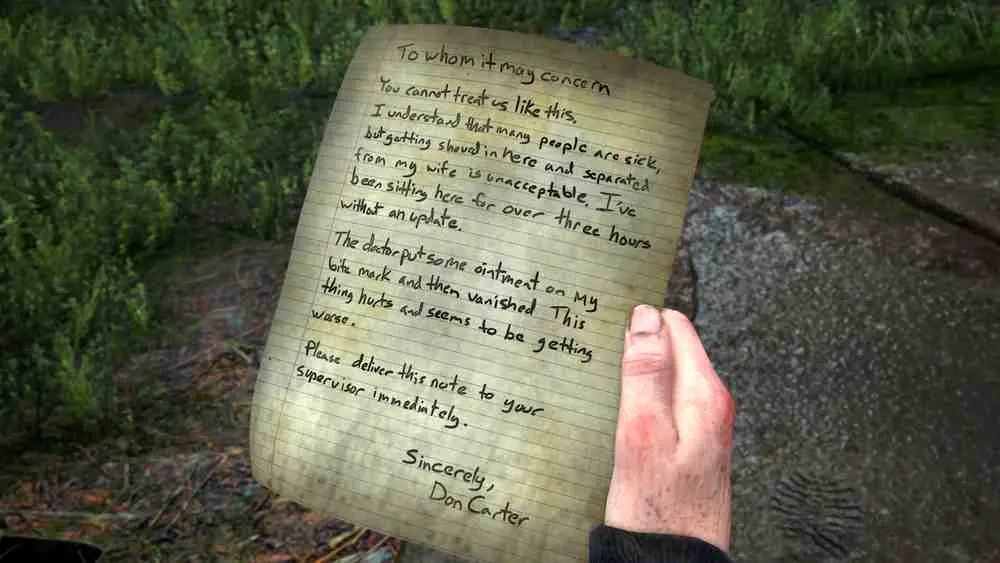 To whom it may concern
You cannot treat us like this.
I understand that many people are sick,
but getting shoved in here and separated
from my wife is unacceptable. I've
been sitting here for over three hours
without an update.
The doctor put some ointment on my
bite mark and then vanished This
thing hurts and seems to be getting
worse.
Please deliver this note to your
supervisor immediately.
Sincerely,
Don Carter